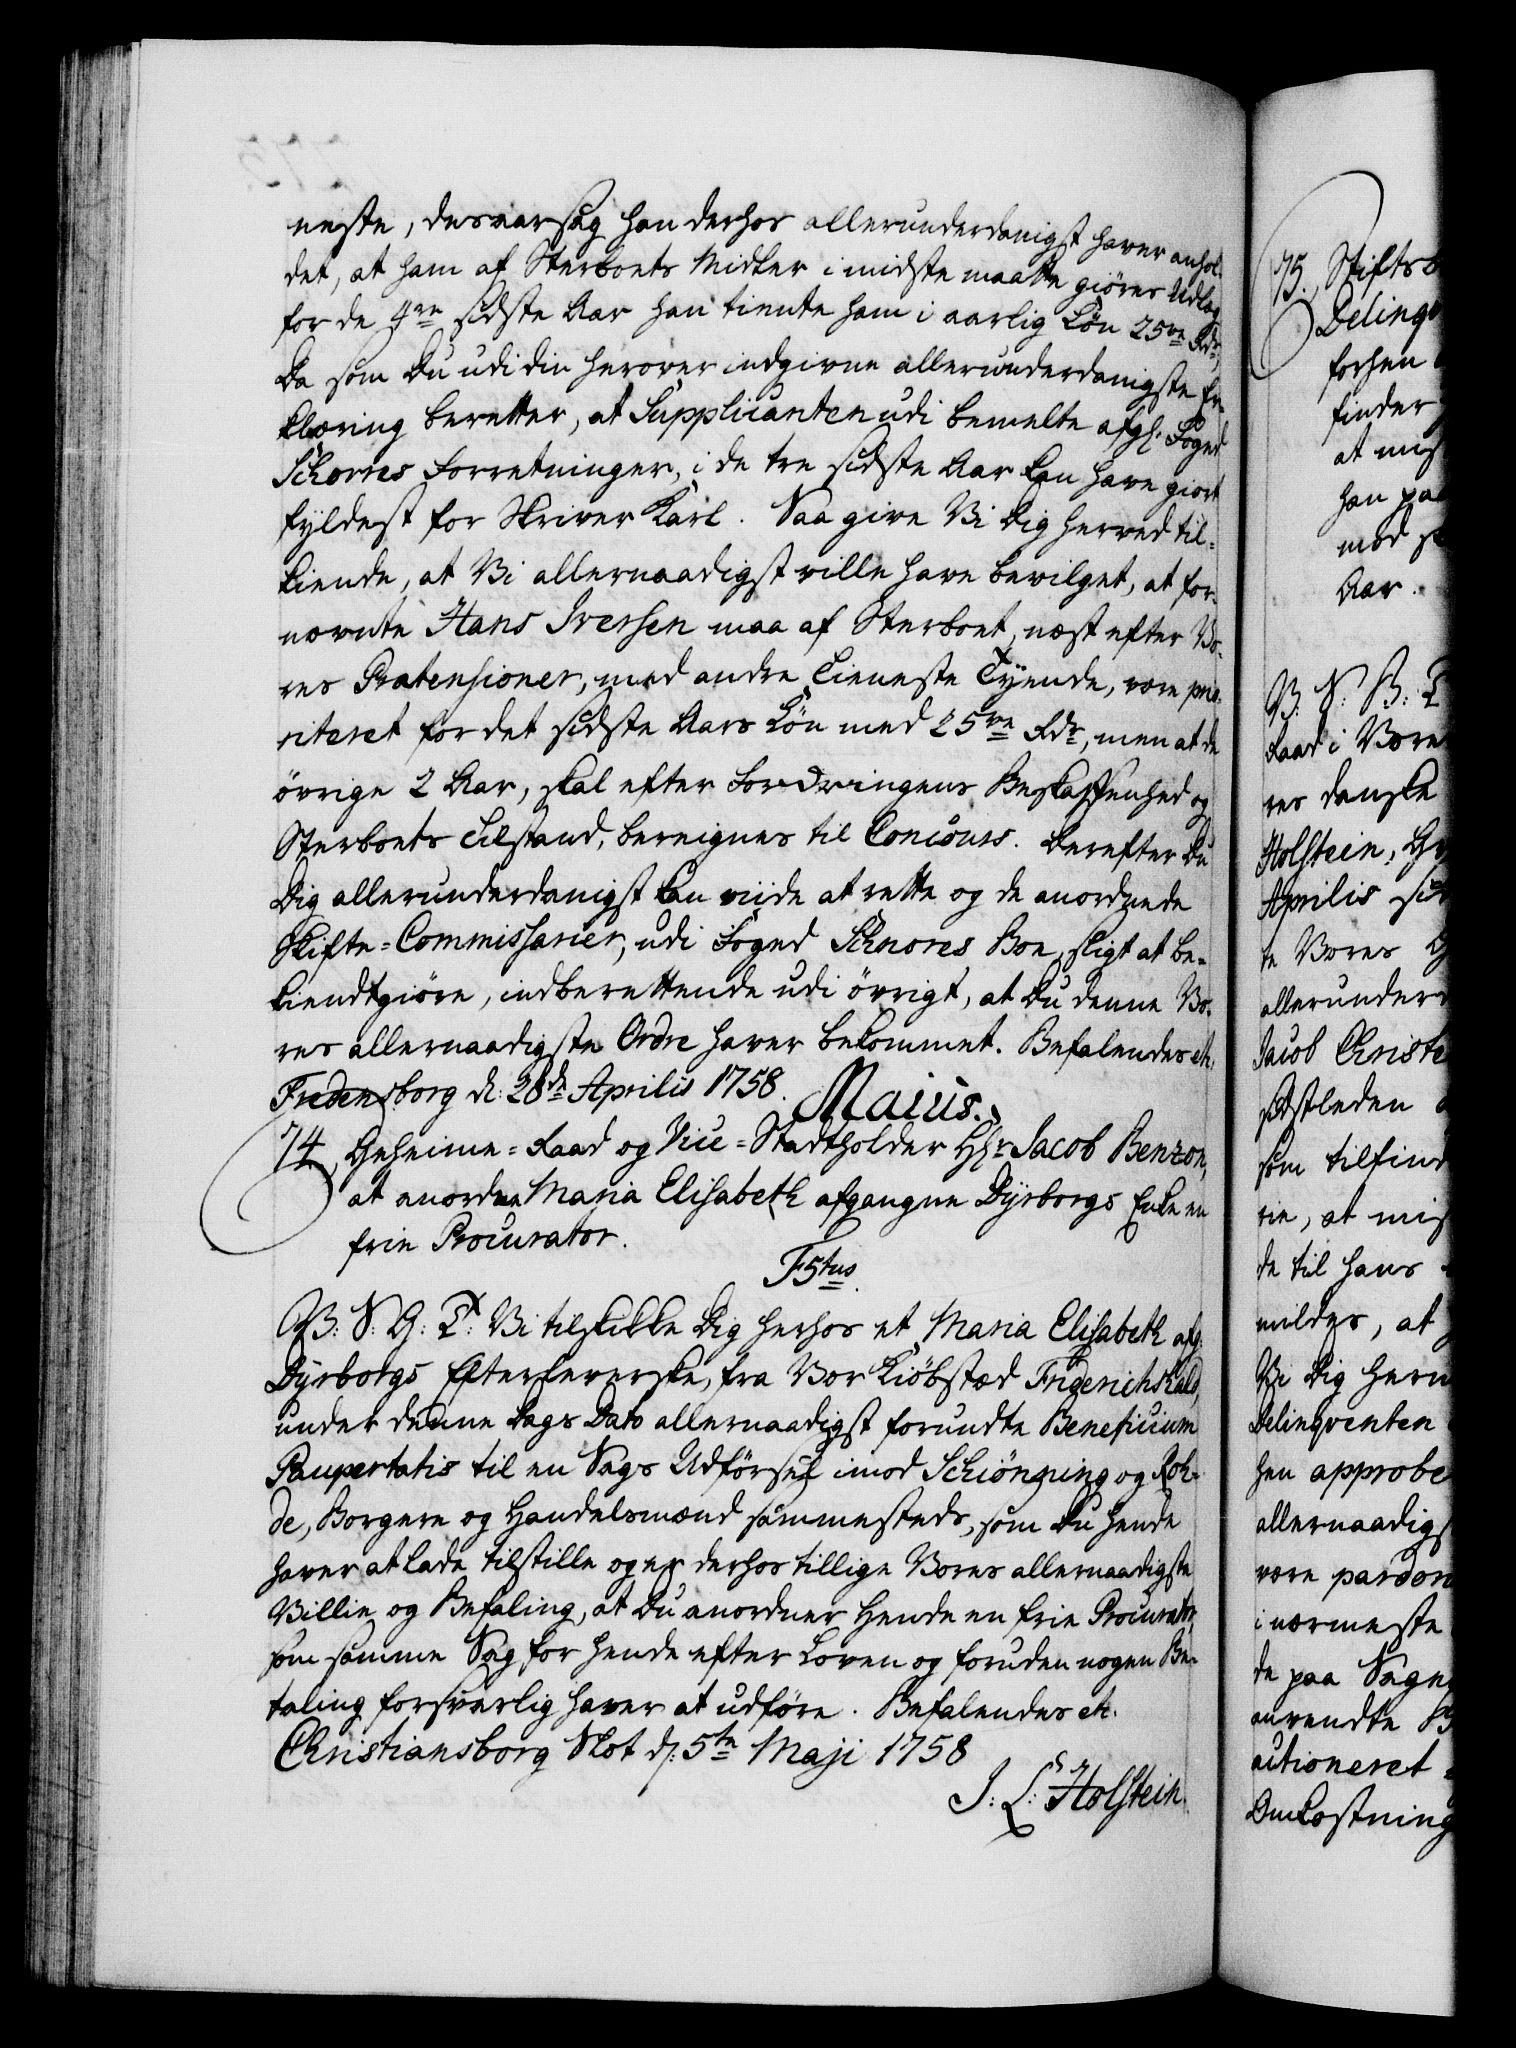 neste, desaarsag han derhos allerunderdanigst haver anhol-
det, at ham af Sterboets Midler i midste maatte giöres Udlæg
for de 4re sidste Aar han tiente ham i aarlig Lön 25ve Rdr,
Da som Du udi din herover indgivne allerunderdanigste Er-
klæring beretter, at Supplicanten udi bemelte afg: Foged
Schorres Forretninger, i de tre sidste Aar kan have giort
fyldest for Skriver Karl. Saa give Vi Dig herved til-
kiende, at Vi allernaadigst ville have bevilget, at for-
nævnte Hans Iversen maa af Sterboet, næst efter Vo-
res Prætensioner, med andre Tieneste Tyende, være prio-
riteret for det sidste Aars Lön med 25ve Rdr, men at de
övrige 2 Aar, skal efter Fordringens Beskaffenhed og
Sterboets Tilstand, beregnes til Concours. Derefter Du
Dig allerunderdanigst kan viide at rette og de anordnede
Skifte-Commissarier, udi Foged Schnores Boe, sligt at be-
kiendtgiöre, indberettende udi övrigt, at Du denne Vo-
res allernaadigste Ordre haver bekommet. Befalendes etc.
Fredensborg d: 28de Aprilis 1758.
Maius.
74, Geheime-Raad og Vice-Stadtholder Hr: Jacob Benzon,
at anordne Maria Elisabeth afgangne Dyrborgs Enke en
frie Procurator.
F5tus.
V. S. G. T: Vi tilskikke Dig herhos et Maria Elisabeth afg:
Dyrborgs Efterleverske, fra Vor Kiöbstæd Friderichshald,
under denne Dags Dato allernaadigst forundte Beneficium
Paupertatis til en Sags Udförsel imod Schiönning og Roh-
de, Borgere og Handelsmænd sammesteds, som Du hende
haver at lade tilstille og er derhos tillige Vores allernaadigste
Villie og Befaling, at Du anordner Hende en frie Procurator,
som samme Sag for hende efter Loven og foruden nogen Be-
taling forsvarlig haver at udföre. Befalendes etc.
Christiansborg Slot d: 5te Maji 1758
J: L: Holstein.
75. Stifts
Delinqv
forhen
finder
at mis
han paa
mod
Aar.
V: S: G: T
Raad i Vore
res danske
Holstein, Gr
Aprilis sid
te Vores
allerunder
Jacob Christe
sidstleden
som tilfind
rie, at mis
de til hans
mildes, at
Vi Dig herv
Delinqventen
hen approbe
allernaadigs
være pardon
i nærmeste
de paa Sagen
anvendte
actioneret
Omkostning